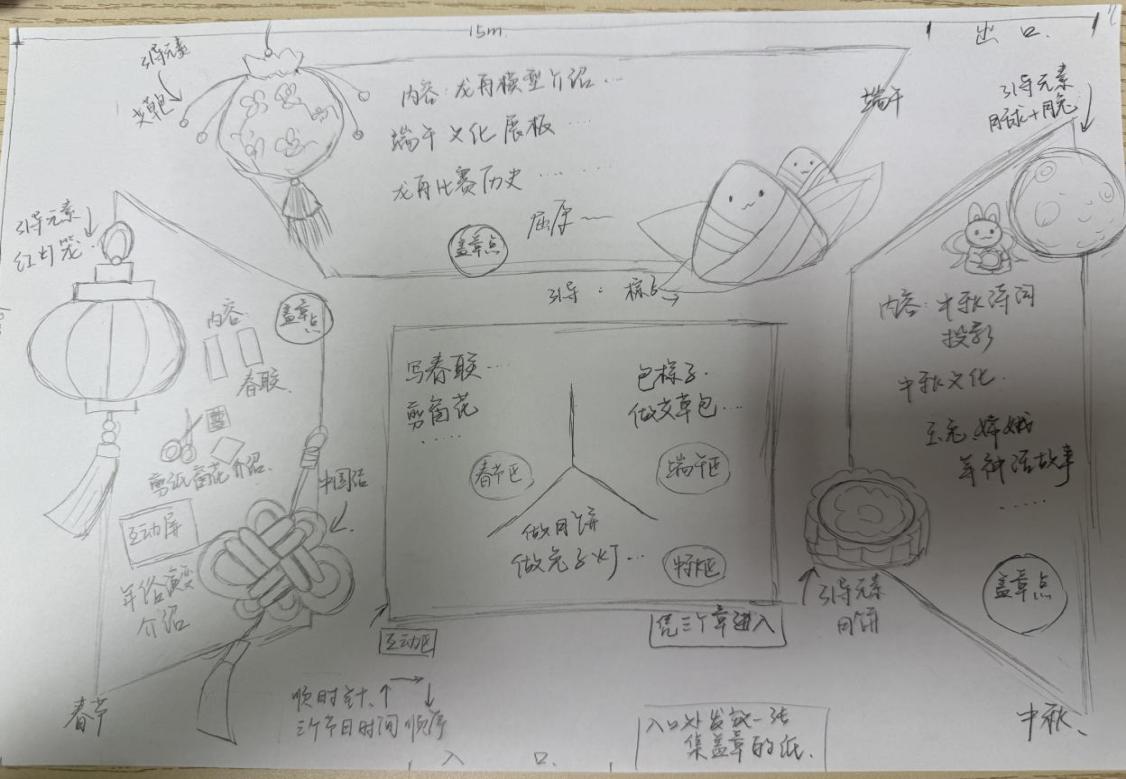 15m.
出口.
引导元素
艾草包
内容:龙舟模型介绍...
端午文化展板....
龙舟比赛历史....
屈原~
盖章点
端午
引导:粽子
引导元素
月球+月兔
引导元素
红灯笼.
内容:
春联.
盖章点
剪纸窗花介绍.
互动屏
年俗演变
介绍
中国结
春节
写春联...
剪窗花
.....
包粽子.
做艾草包...
春节区
端午区
做月饼
做兔子灯...
中秋区
互动区
凭三个章进入
内容:中秋诗词
投影
中秋文化.
玉兔,嫦娥
等神话故事
.....
盖章点
引导元素
月饼
中秋、
顺时针.
三个节日时间顺序
入口处发放一张
集盖章的纸.
入口.